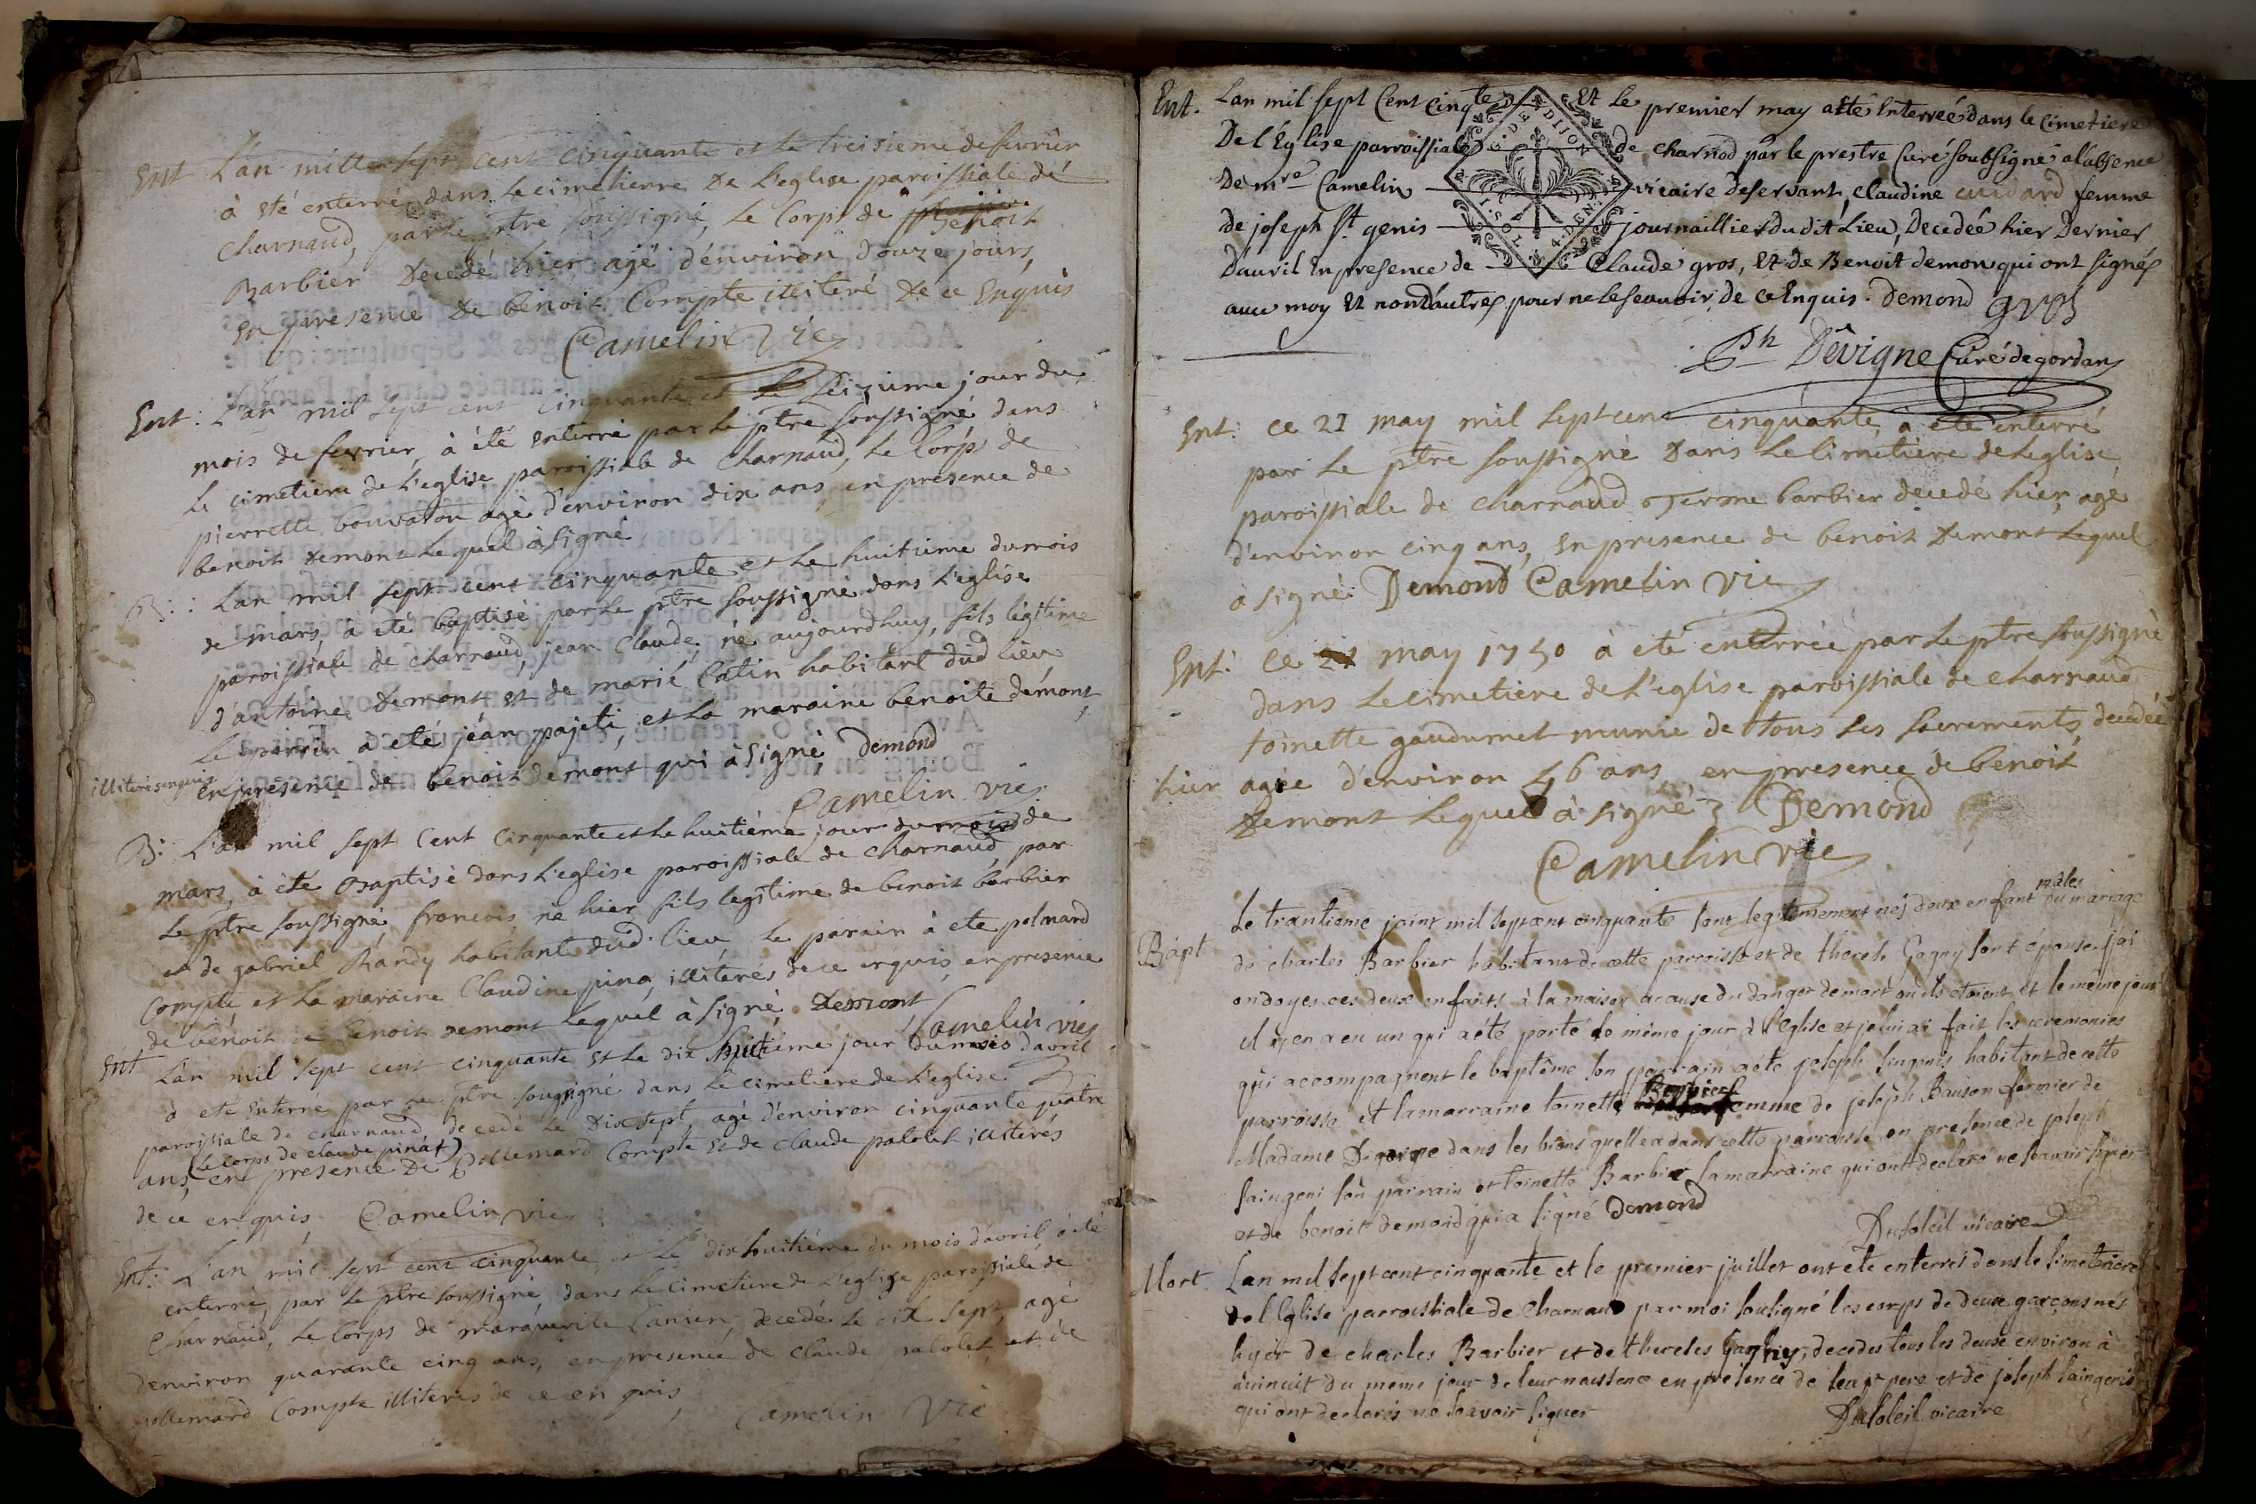 Ent L'an mille sept cent cinquante et le treisieme de fevrier
à eté enterré, dans le cimetierre De L'eglise paroissiale dé
Charnaud, par le ptré soussigné, Le Corps de Benoit
Barbier Décedé hier agé d'énviron douze jours,
En presence De benoit Compte illiteré De ce Enquis
Camelin vic
Ent: L'an mil sept cens cinquante et Le seizieme jour du
mois de fevrier, à été enterré par Le ptre soussigné dans
Le cimetiere de L'eglise paroissiale de Charnaud, Le Corps de
pierrette bouvaton agé d'environ dix ans, en presence de
benoit Demont Lequel à signé
B: Lan mil sept cent cinquante et Le huitieme du mois
de mars, à été baptisé par Le ptre soussigné dans L'eglise
paroissiale de charnaud, jean Claude, né aujourdhuy, fils légitime
d'antoine Demont et de marie Catin habitant dud lieu
Le parrin a eté jéan pajeti, et la maraine benoite démont,
illiteré enquis
en presence de benoit demont qui à signé, Demond
Camelin vic
B: L'an mil sept Cent Cinquante et Le huitiéme jour du mois de
mars, à été Baptisé dans L'eglise paroissiale de Charnaud, par
Le ptre soussigné, francois né hier fils legitime de benoit barbier
et de gabriel Randy habitante dud. lieu Le parain à eté polmard
Compte, et la maraine Claudine pina, illiterés de ce enquis, en presence
de benoit Demont Lequel à signé, Demont Camelin vic
Ent Lan mil sept cent cinquante et Le dix huitieme jour du mois d'avril
à eté Enterré par Le ptre soussigné dans Le cimetiere de L'eglise
paroissiale de charnaud, decedé Le Dix sept, agé d'énviron cinquante quatre
(Le Corps de Claude pinat)
ans, en presence De pollemard Compte et de claude palolet illiterés
de ce enquis, Camelin vic
Ent: L'an mil sept cent cinquante, et Le dix huitiéme du mois d'avril, à eté
enterré, par Le ptre soussigné, dans Le cimetiere de L'eglise paroissiale de
Charnaud, Le Corps de marguerite, decedé Le dix sept, agé
denviron quarante cinq ans, en presence de Claude palolet et de
pollemard Compte illiterés de ce en quis,
Camelin Vic
Ent. Lan mil sept Cent Cinqte Et Le premier may a esté Enterreé dans le Cimetiere
De L'Eglise parroissiale de charnod par le prestre Curé soubsigné a l'absence
De mre Camelin vicaire Deservant, Claudine cuidard femme
de joseph St genis journaillier Du dit Lieu, Decedée hier Dernier
D'auril En presence de Claude gros, Et de Benoit demon qui ont signés
auec moy Et non d'autres pour ne le scauoir, de ce Enquis. Demond gros
G. DE DIJON
1. SOL. 4. DEN.
Ph Dêvigne Curé de gordans
Ent: Ce 21 may mil sept cent cinquante, à eté enterré
par Le ptre soussigné Dans Le Cimetiere de Leglise
paroissiale de Charnaud terme barbier decedé hier, agé
d'environ cinq ans, En presence de benoit Demont Lequel
à signé: Demond Camelin vic
Ent: Ce 21 may 1750 à eté enterrée par Le ptre soussigné
dans Le cimetiere de L'eglise paroissiale de charnaud
toinette gaudumet munie de tous ses sacrements, decedée
hier agée d'environ 46 ans, en presence de benoit
Demont Lequel à signé Demond
Camelin vic
Bapt Le trantieme joint mil sept cent cinquante sont legitimement nés deux enfant mâles du mariage
de charles Barbier habitant de cette parroisse et de therese Gagny son épouse. j'ai
ondoyer ces deux enfants à la maison a cause du danger de mort ou ils etoient, et le même jour
il y en a eu un qui a été porté le même jour à l'Eglise et je lui ai fait les ceremonies
qui accompagnent le baptême son parrain a été joseph singenis habitant de cette
parroisse et la marraine toinette Barbier femme de joseph Banson fermier de
Madame Digoine dans les biens quelle a dans cette parroisse en presence de joseph
saingeni son parrain et toinette Barbier sa marraine qui ont declaré ne scavoir signer
et de benoit demond qui a signé Demond
Dusoleil vicaire
Mort Lan mil sept cent cinquante et le premier juillet ont eté enterrés dans le simetierre
de lEglise parroissiale de Charnaud par moi sousigné les corps de deux garçons nés
hyer de charles Barbier et de thereses Gagny, decedes tous les deux environ à
minuit du meme jour de leur naissence en presence de leur pere et de joseph saingenis
qui ont declarés ne scavoir signer Dusoleil vicaire